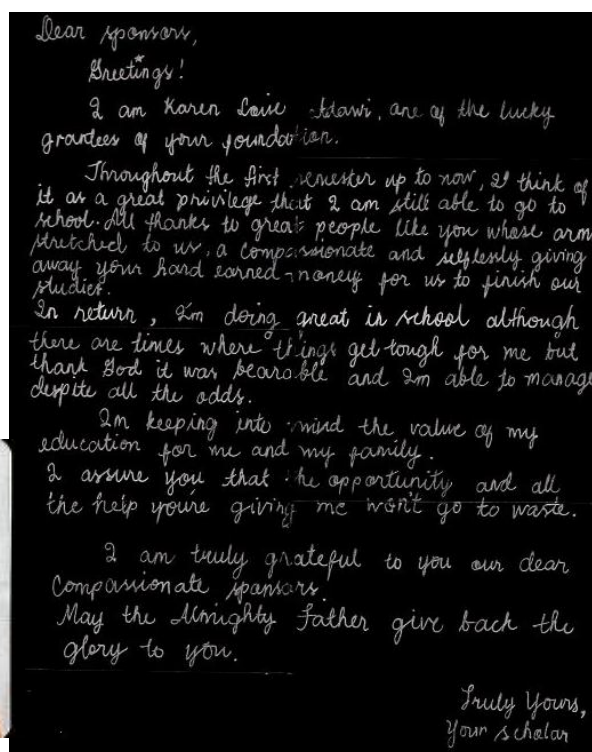 Dear sponsors,
Greetings!
I am Karen Adawi, one of the lucky
grantees of your foundation.
Throughout the first semester up to now, I think of
it as a great privilege that I am still able to go to
school. All thanks to great people like you whose arm
stretched to us, a compassionate and selflessly giving
away your hard earned money for us to finish our
studies.
In return, I'm doing great in school although
there are times where things get tough for me but
thank God it was bearable and I'm able to manage
despite all the odds.
I'm keeping into mind the value of my
education for me and my family.
I assure you that the opportunity and all
the help you're giving me won't go to waste.
I am truly grateful to you our dear
compassionate sponsors.
May the Almighty Father give back the
glory to you.
Truly Yours,
Your scholar